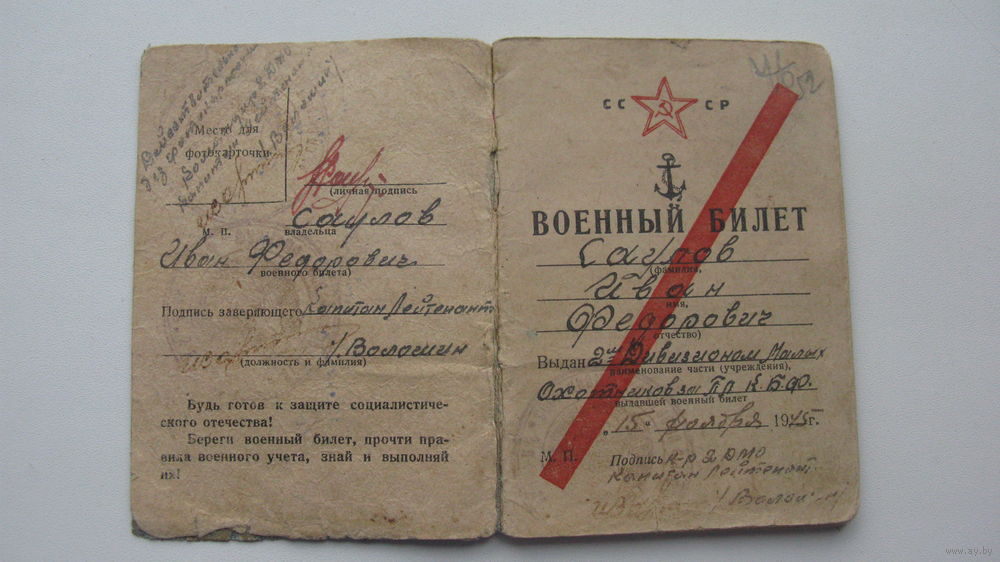 Действительно
без фотокарточки
Место для
фотокарточки
(личная подпись
Саулов
М. П. владельца
Иван Федорович
военного билета)
Подпись заверяющего Капитан Лейтенант
/ Волошин
(должность и фамилия)
Будь готов к защите социалистиче-
ского отечества!
Береги военный билет, прочти пра-
вила военного учета, знай и выполняй
их!
СС СР
ВОЕННЫЙ БИЛЕТ
Саулов
(фамилия,
Иван
имя,
Федорович
отчество)
Выдан 2ым Дивизионом Малых
наименование части (учреждения),
Охотников за Пр К.Б.Ф.
выдавшей военный билет
„15" ноября 1945г.
М. П. Подпись К-р 2 ДМО
Капитан Лейтенант
www.ay.by